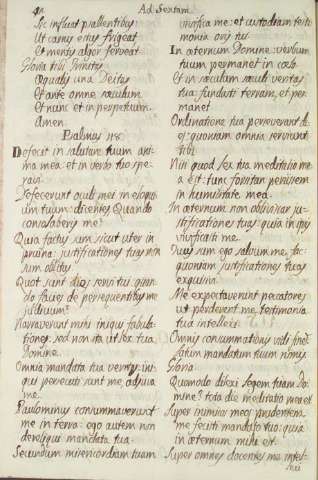 Ad Sextam.
Sic influat psallentibus
Ut carnis æstus frigeat
Et mentis algor ferveat
Gloria tibi Trinitas
Æqualis una Deitas
Et ante omne sæculum
Et nunc et in perpetuum.
Amen.
Psalmus 118.
Defecit in salutare tuum ani-
ma mea: et in verbo tuo spe-
ravi.
Defecerunt oculi mei in eloqui-
um tuum: dicentes Quando
consolaberis me?
Quia factus sum sicut uter in
pruina: justificationes tuas non
sum oblitus
Quot sunt dies servi tui: quan-
do facies de persequentibus me
judicium?
Narraverunt mihi iniqui fabula-
tiones: sed non ita ut lex tua,
Domine.
Omnia mandata tua veritas: ini-
qui persecuti sunt me, adjuva
me.
Paulominus consummaverunt
me in terra: ego autem non
dereliqui mandata tua.
Secundum misericordiam tuam
vivifica me: et custodiam testi-
monia oris tui
In æternum Domine: verbum
tuum permanet in cælo.
Et in sæculum sæculi veritas
tua: fundasti terram, et per
manet
Ordinatione tua perseverant di-
es: quoniam omnia serviunt
tibi.
Nisi quod lex tua meditatio me
a est: tunc forsitan periissem
in humilitate mea.
In æternum non obliviscar ju-
stificationes tuas: quia in ipsis
vivificasti me.
Tuus sum ego salvum me fac
quoniam justificationes tuas
exquisivi.
Me expectaverunt peccatores
ut perderent me: testimonia
tua intellexi.
Omnis consummationis vidi fine
latum mandatum tuum nimis
Gloria.
Quomodo dilexi legem tuam Do-
mine? tota die meditatio mea est
Super inimicos meos prudentem
me fecisti mandato tuo: quia
in æternum mihi est.
Super omnes docentes me intel-